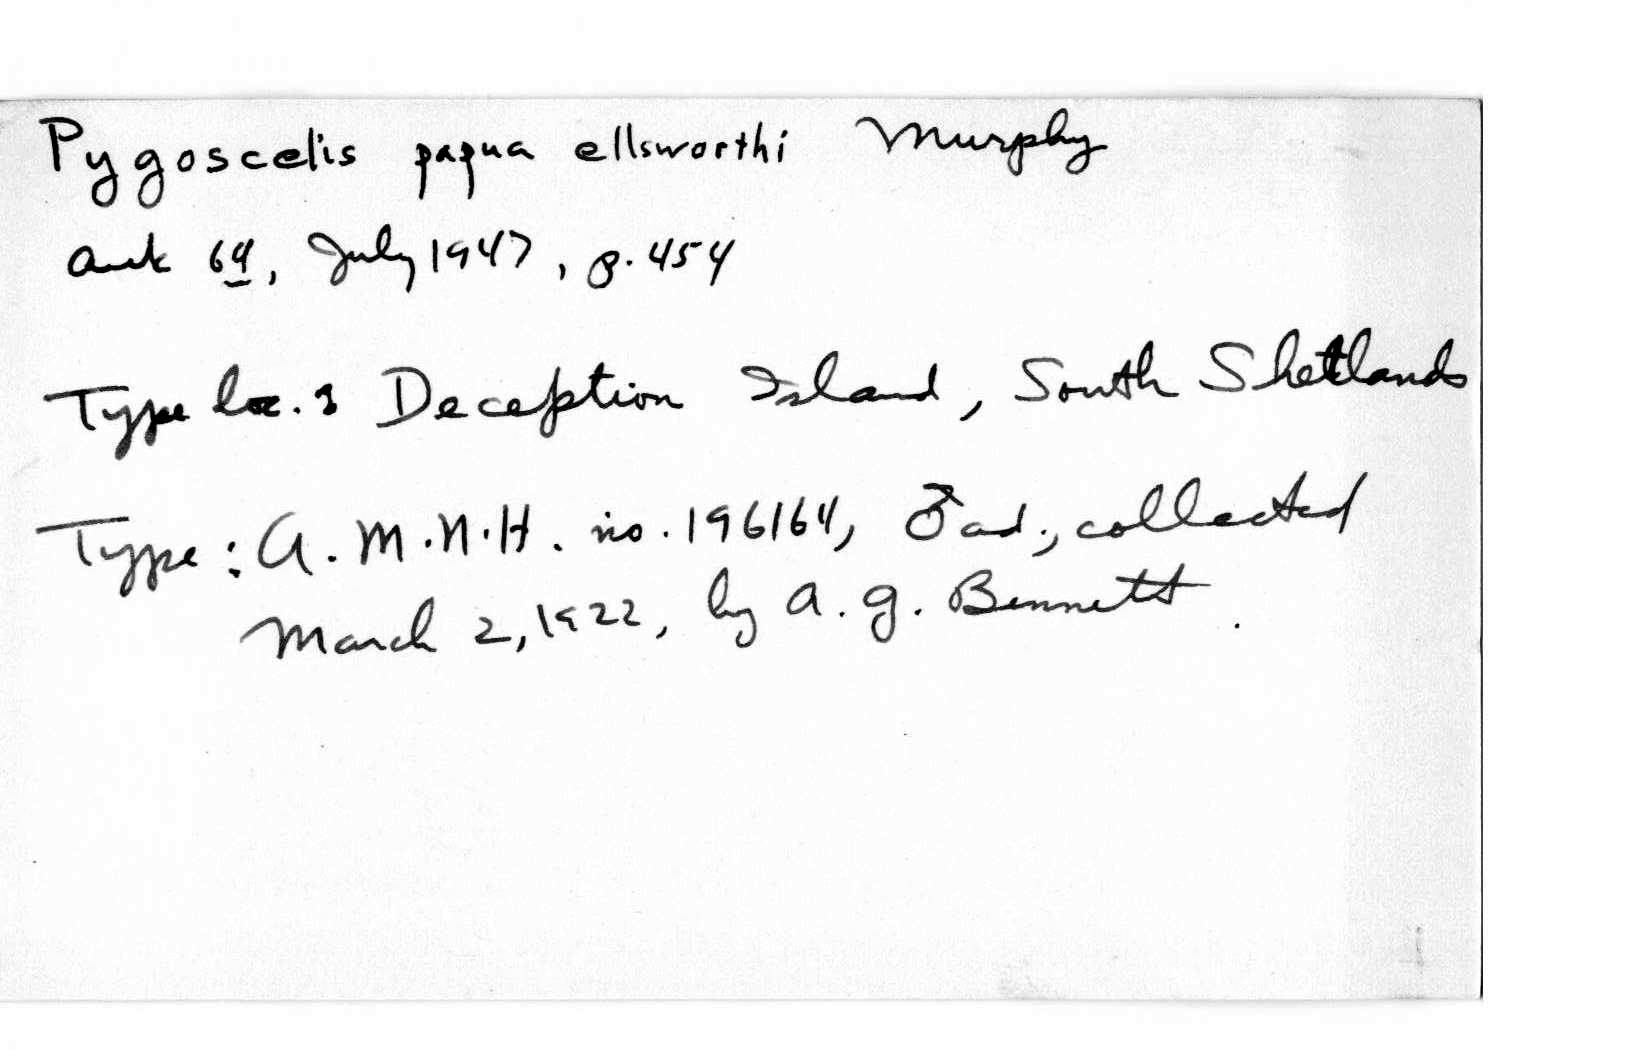 Pygoscelis papua ellsworthi Murphy
Auk 64, July 1947, p. 454
Type loc.: Deception Island, South Shetlands
Type: A.M.N.H. no. 196164, ♂ ad., collected
March 2, 1922, by A. G. Bennett.